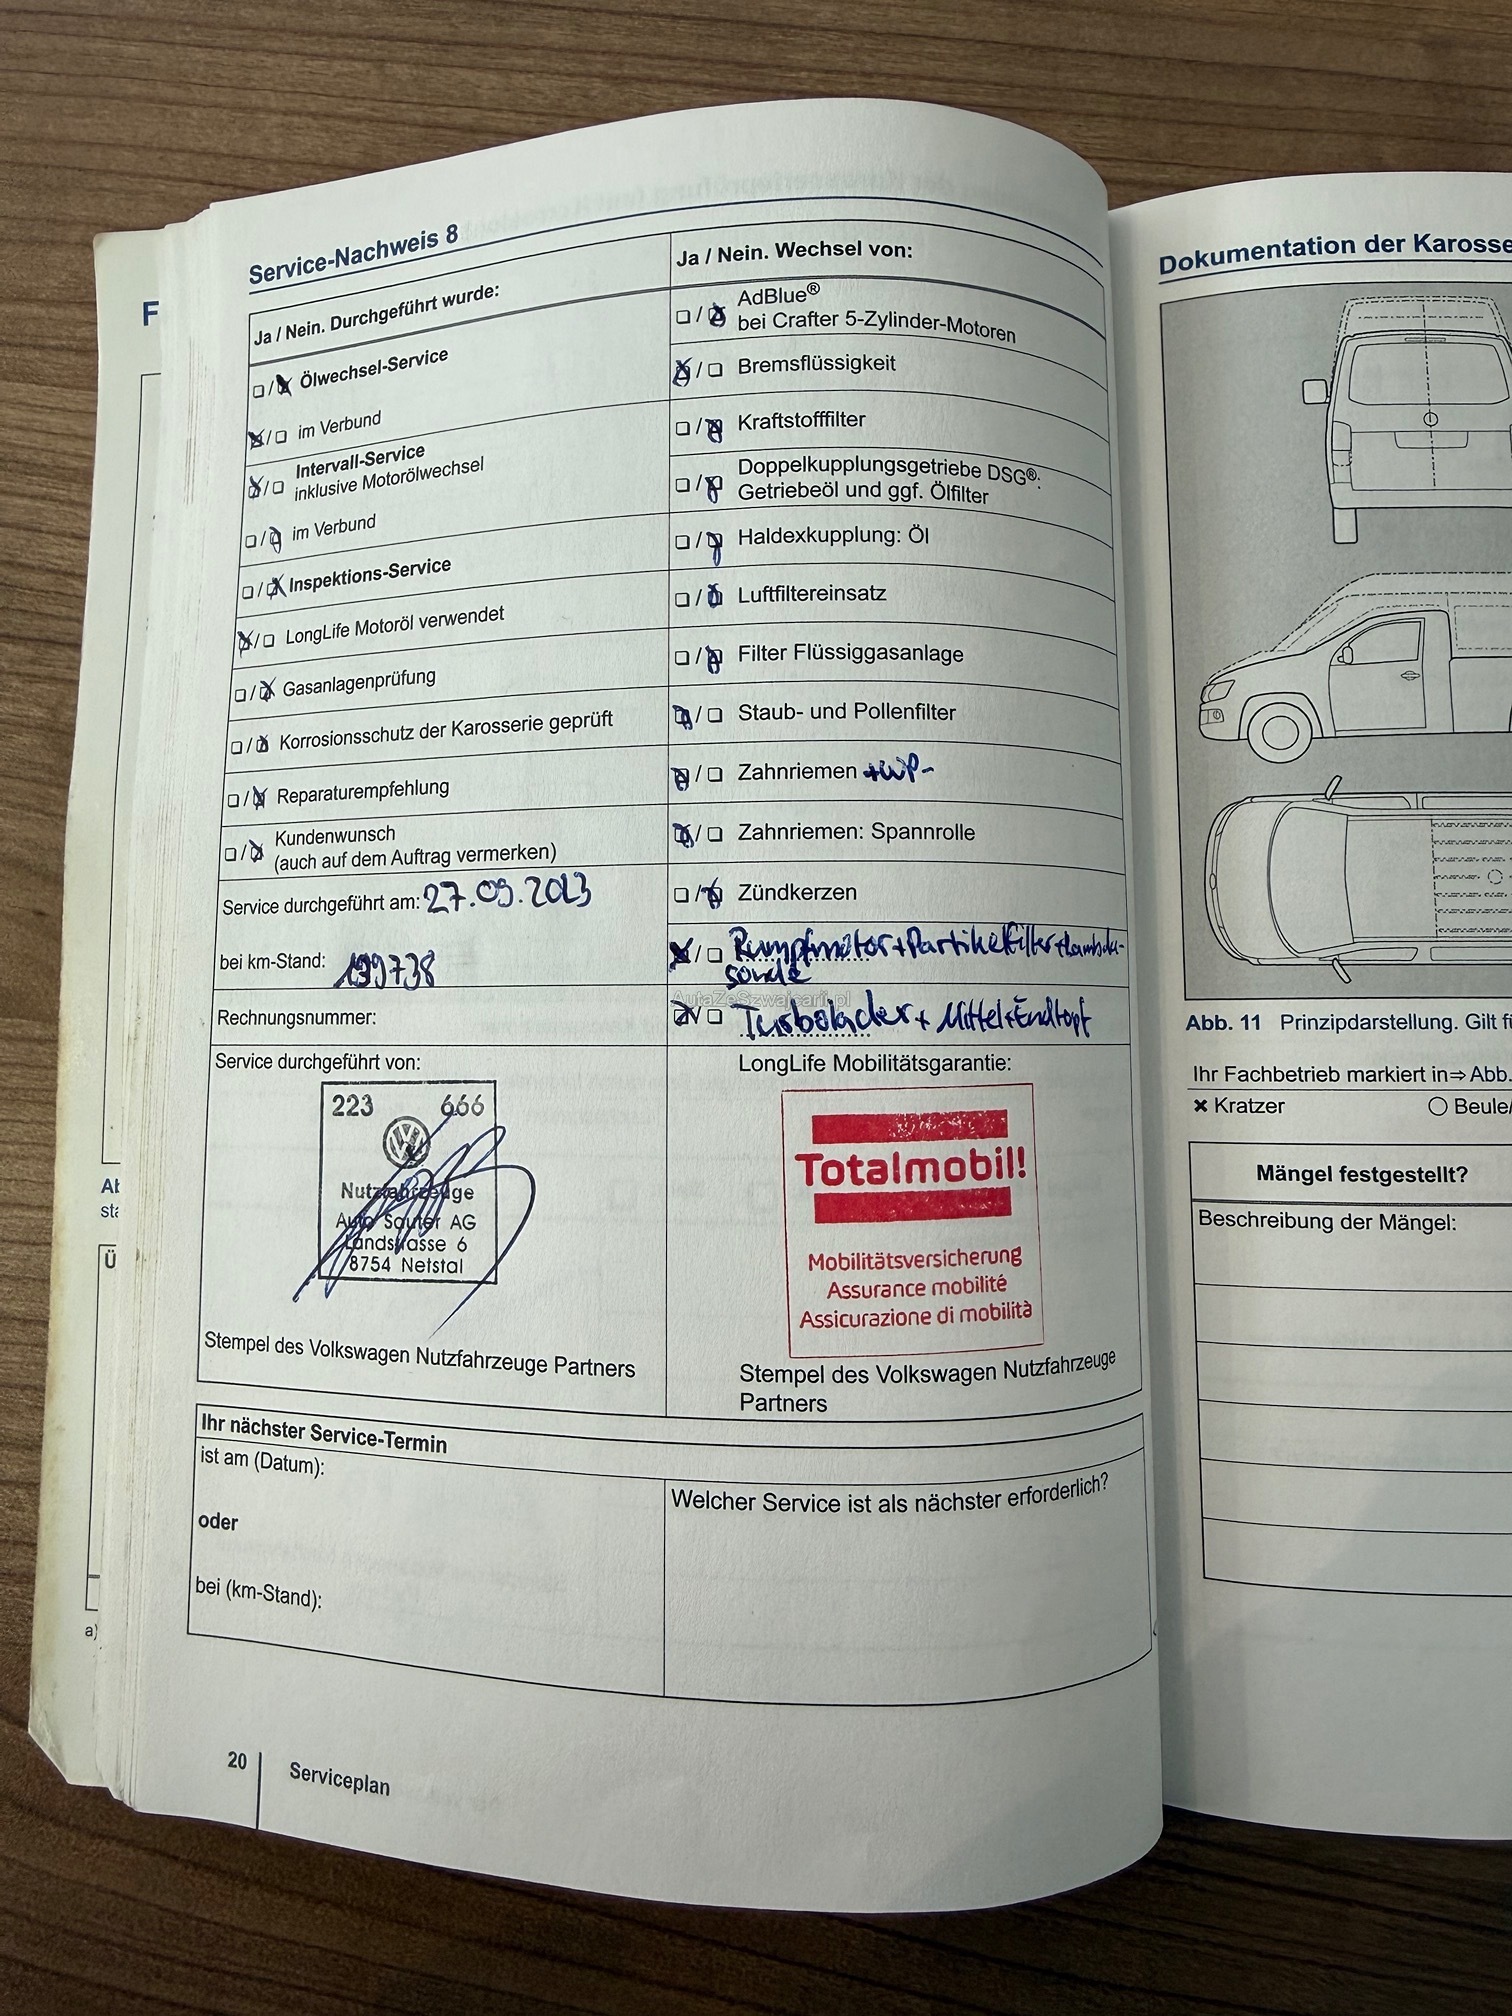 Service-Nachweis 8
Ja / Nein. Durchgeführt wurde:
Ölwechsel-Service
im Verbund
Intervall-Service
inklusive Motorölwechsel
im Verbund
Inspektions-Service
LongLife Motoröl verwendet
Gasanlagenprüfung
Korrosionsschutz der Karosserie geprüft
Reparaturempfehlung
Kundenwunsch
(auch auf dem Auftrag vermerken)
Service durchgeführt am: 27.09.2023
bei km-Stand: 199738
Rechnungsnummer:
Service durchgeführt von:
223 666
Nutzfahrzeuge
Auto Sauter AG
Landstrasse 6
8754 Netstal
Stempel des Volkswagen Nutzfahrzeuge Partners
Ja / Nein. Wechsel von:
AdBlue®
bei Crafter 5-Zylinder-Motoren
Bremsflüssigkeit
Kraftstofffilter
Doppelkupplungsgetriebe DSG®:
Getriebeöl und ggf. Ölfilter
Haldexkupplung: Öl
Luftfiltereinsatz
Filter Flüssiggasanlage
Staub- und Pollenfilter
Zahnriemen +WP-
Zahnriemen: Spannrolle
Zündkerzen
Rumpfmotor+Partikelfilter+Lambda-
sonde
AutaZeSzwajcarii.pl
Turbolader + Mittel+Endtopf
LongLife Mobilitätsgarantie:
Totalmobil!
Mobilitätsversicherung
Assurance mobilité
Assicurazione di mobilità
Stempel des Volkswagen Nutzfahrzeuge
Partners
Ihr nächster Service-Termin
ist am (Datum):
oder
bei (km-Stand):
Welcher Service ist als nächster erforderlich?
20
Serviceplan
Dokumentation der Karosse
Abb. 11 Prinzipdarstellung. Gilt f
Ihr Fachbetrieb markiert in⇒ Abb.
Kratzer
Beule/
Mängel festgestellt?
Beschreibung der Mängel:
F
Ab
sta
Ü
a)